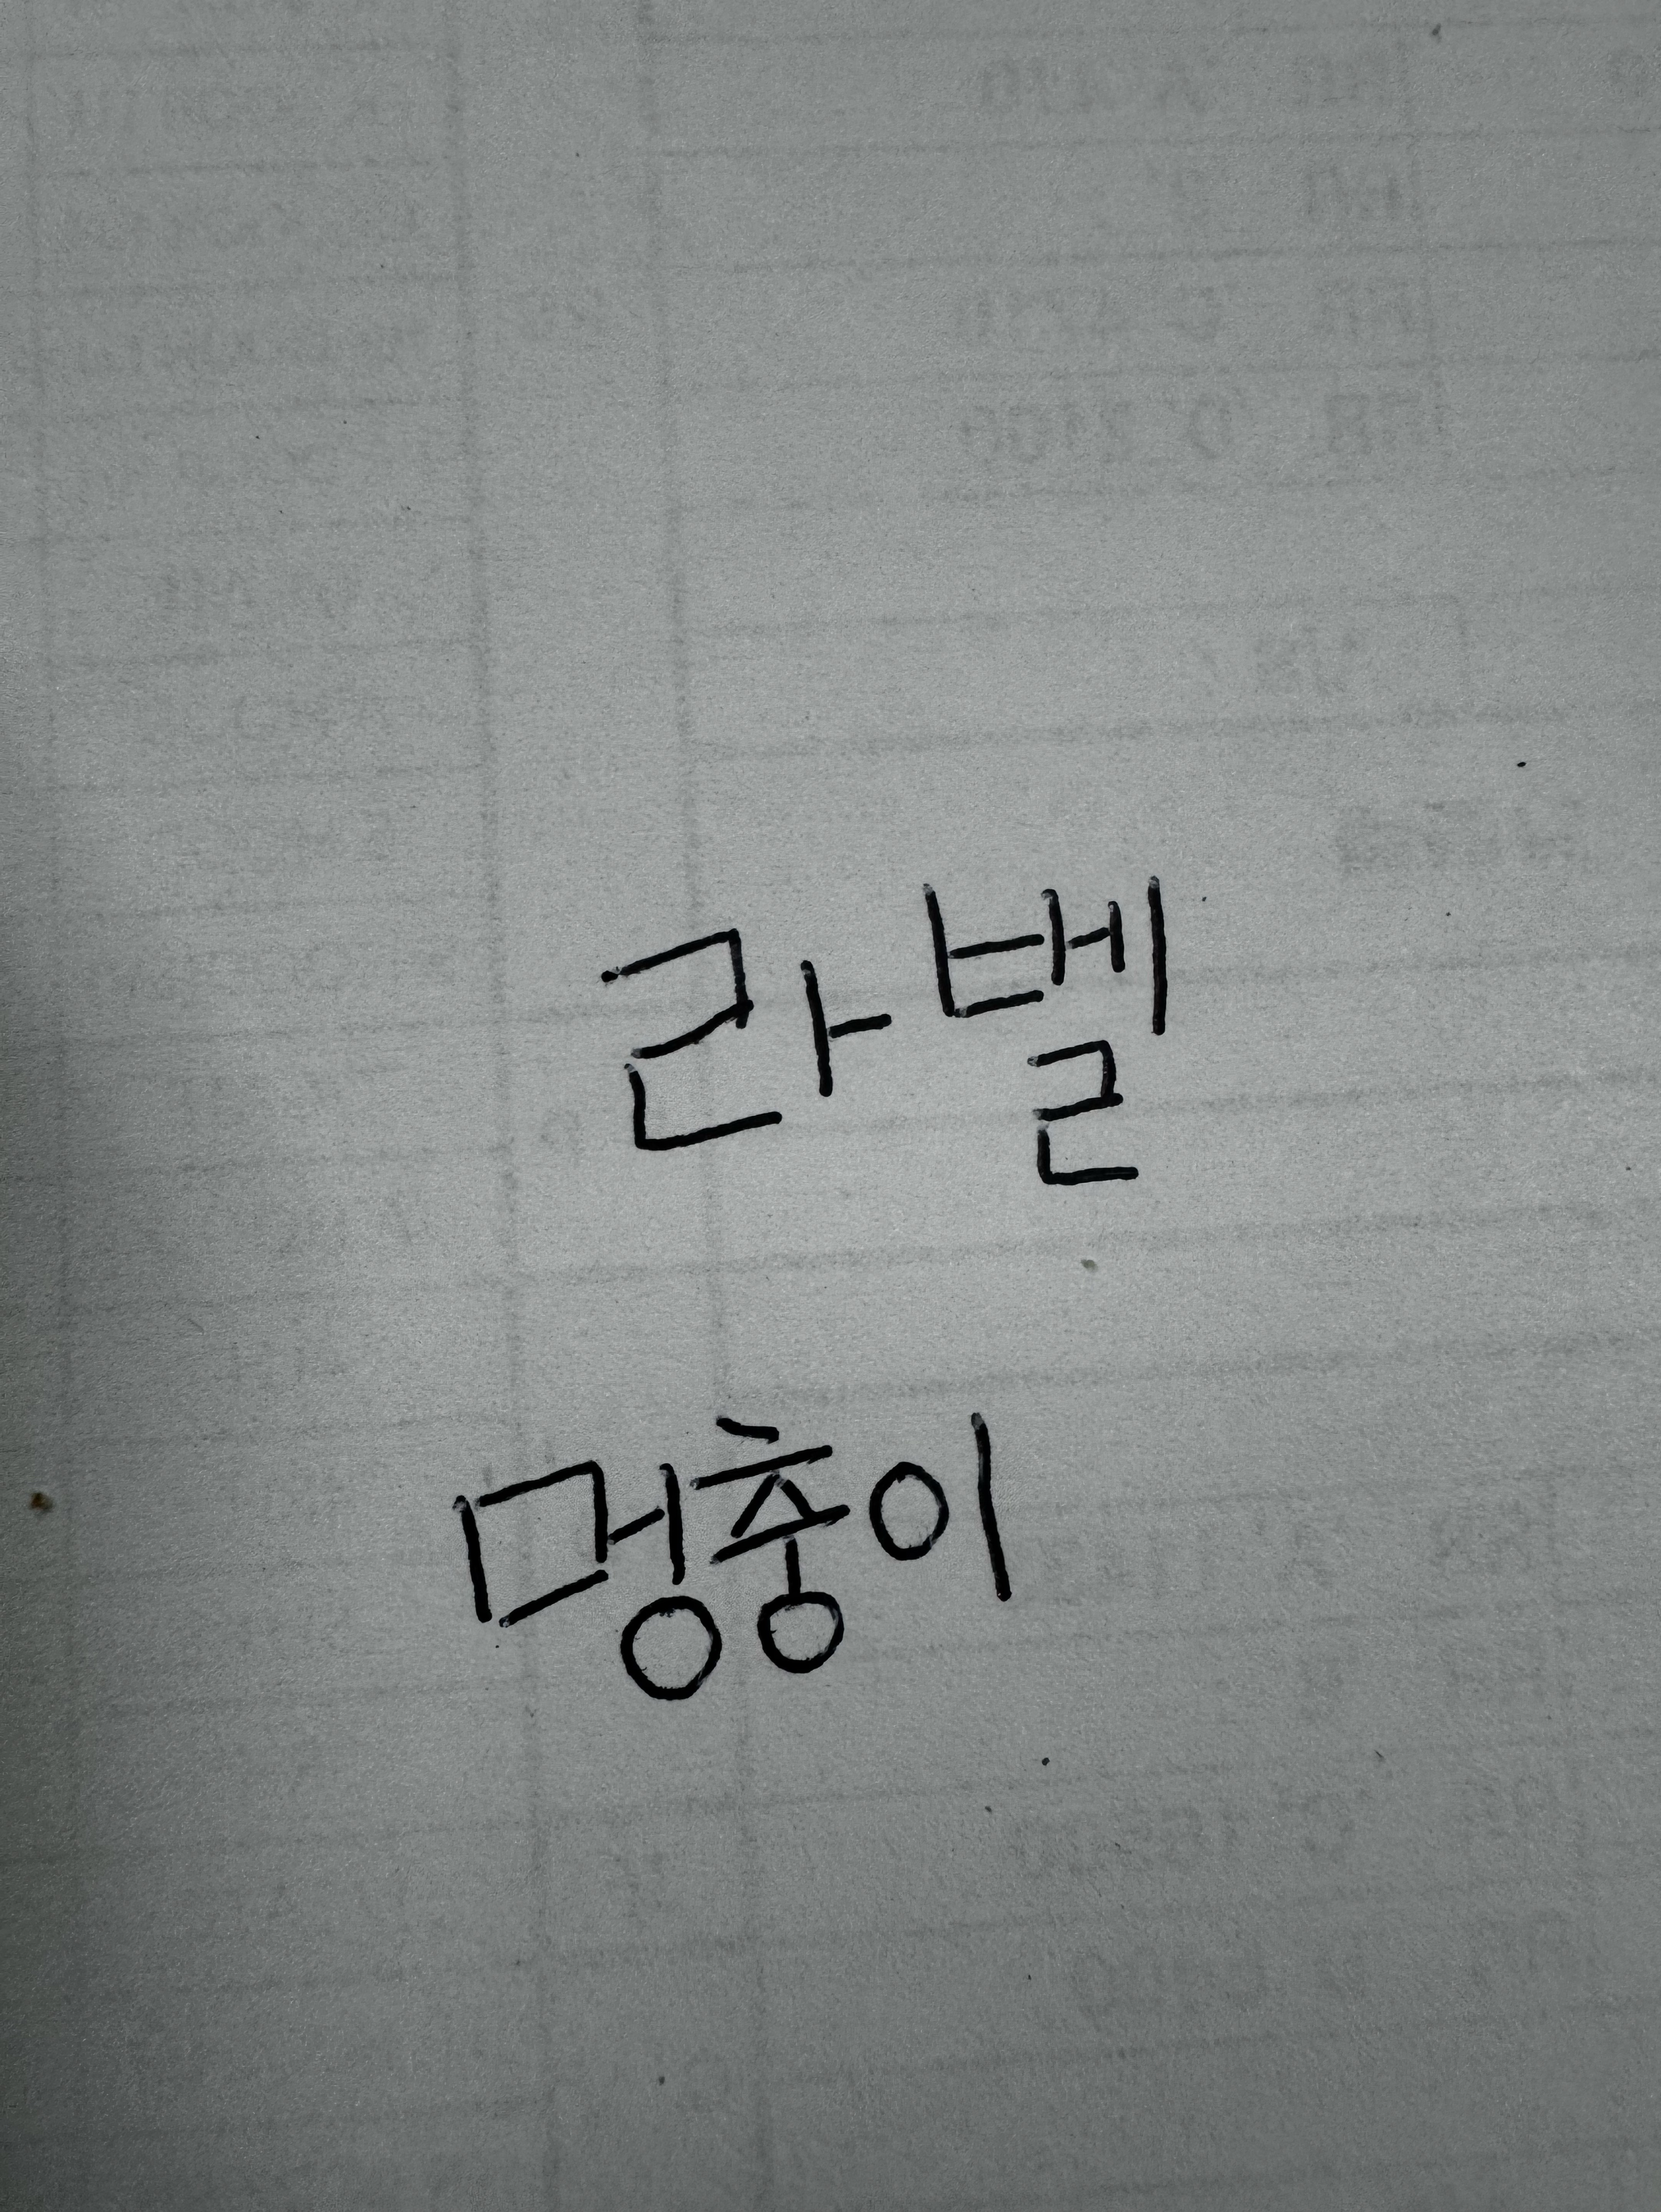 라벨
멍충이